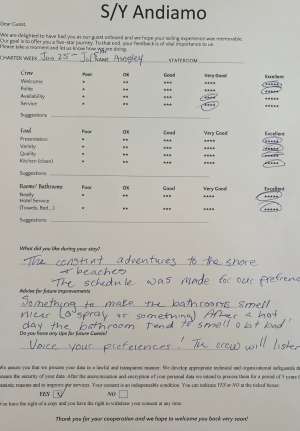 S/Y Andiamo
Dear Guest,
We are delighted to have had you as our guest onboard and we hope your sailing experience was memorable.
Our goal is to offer you a five-star journey. To that end, your feedback is of vital importance to us.
Please take a moment and let us know how we are doing.
CHARTER WEEK Jan 25 - STATEROOM
Crew Poor OK Good Very Good Excellent
Welcome * ** *** **** *****
Polite * ** *** **** *****
Availability * ** *** **** *****
Service * ** *** **** *****
Suggestions
Food Poor OK Good Very Good Excellent
Presentation * ** *** **** *****
Variety * ** *** **** *****
Quality * ** *** **** *****
Kitchen (clean) * ** *** **** *****
Suggestions
Rooms/ Bathrooms Poor OK Good Very Good Excellent
Ready * ** *** **** *****
Hotel Service
(Towels, Bed...) * ** *** **** *****
Suggestions
What did you like during your stay?
The constant adventures to the shore
+ beaches
The schedule was made for our
Advise for future improvements
Something to make the bathrooms smell
nicer (a spray or something) After a hot
day the bathroom tend to smell a bit bad!
Do you have any tips for future Guests?
Voice your preferences! The crew will listen
We assure you that we present your data in a lawful and transparent manner. We develop appropriate technical and organizational safeguards th
ensure the security of your data. After the anonymization and encryption of your personal data we intend to process them for a period of 5 years f
statistic reasons and to improve our services. Your consent is an indispensable condition. You can indicate YES or NO at the ticked boxes:
YES NO
You have the right of a copy and you have the right to withdraw your consent at any time.
Thank you for your cooperation and we hope to welcome you back very soon!